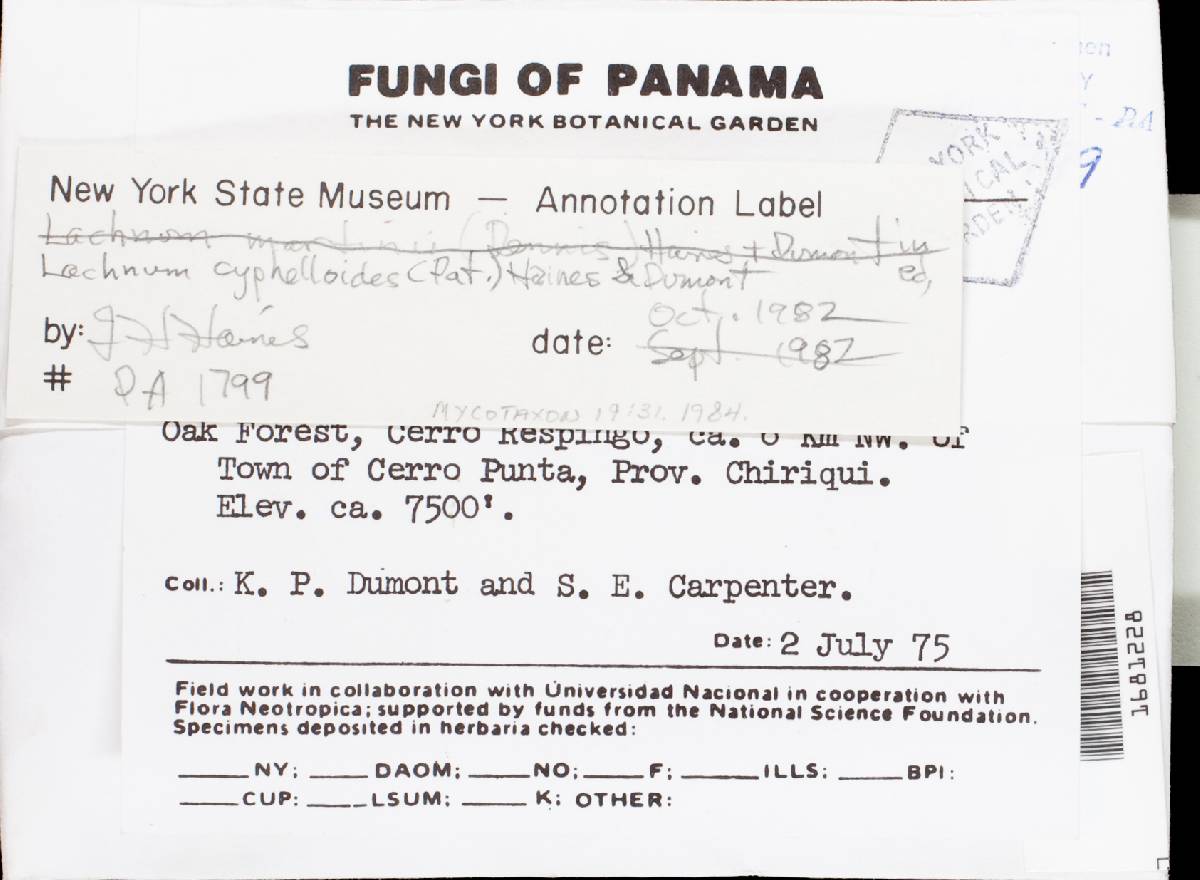 FUNGI OF PANAMA
THE NEW YORK BOTANICAL GARDEN
YORK
CAL
RDEN
New York State Museum — Annotation Label
Lachnum martinii (Dennis) Haines + Dumont in
Lachnum cyphelloides (Pat.) Haines & Dumont ed,
Oct. 1982
by: JHHaines date: Sept. 1982
# DA 1799
MYCOTAXON 19:31. 1984.
Oak Forest, Cerro Respingo, ca. 6 Km NW. of
Town of Cerro Punta, Prov. Chiriqui.
Elev. ca. 7500'.
Coll.: K. P. Dumont and S. E. Carpenter.
Date: 2 July 75
Field work in collaboration with Universidad Nacional in cooperation with
Flora Neotropica; supported by funds from the National Science Foundation.
Specimens deposited in herbaria checked:
____NY; ____DAOM; ____NO; ____F; ____ILLS; ____BPI:
____CUP: ____LSUM; ____K; OTHER:
1681228